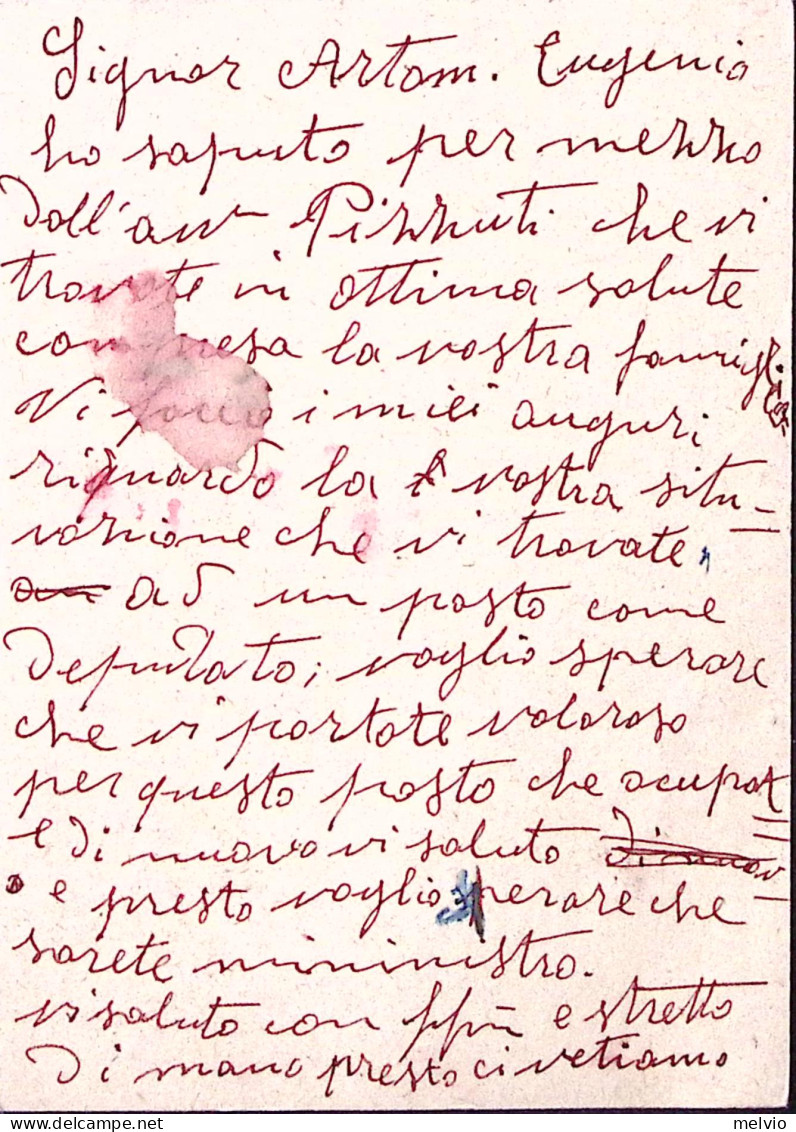 Signor Artom. Eugenio
ho saputo per mezzo
dall'avv Pizzuti che vi
trovate in ottima salute
compresa la vostra famiglia
Vi faccio i miei auguri
riguardo la vostra situ=
vazione che vi trovate,
ad un posto come
deputato; voglio sperare
che vi portate valoroso
per questo posto che ocupat=
e di nuovo vi saluto
e presto voglio sperare che
sarete mininistro.
vi saluto con e stretto
di mano presto ci vetiamo
melvio